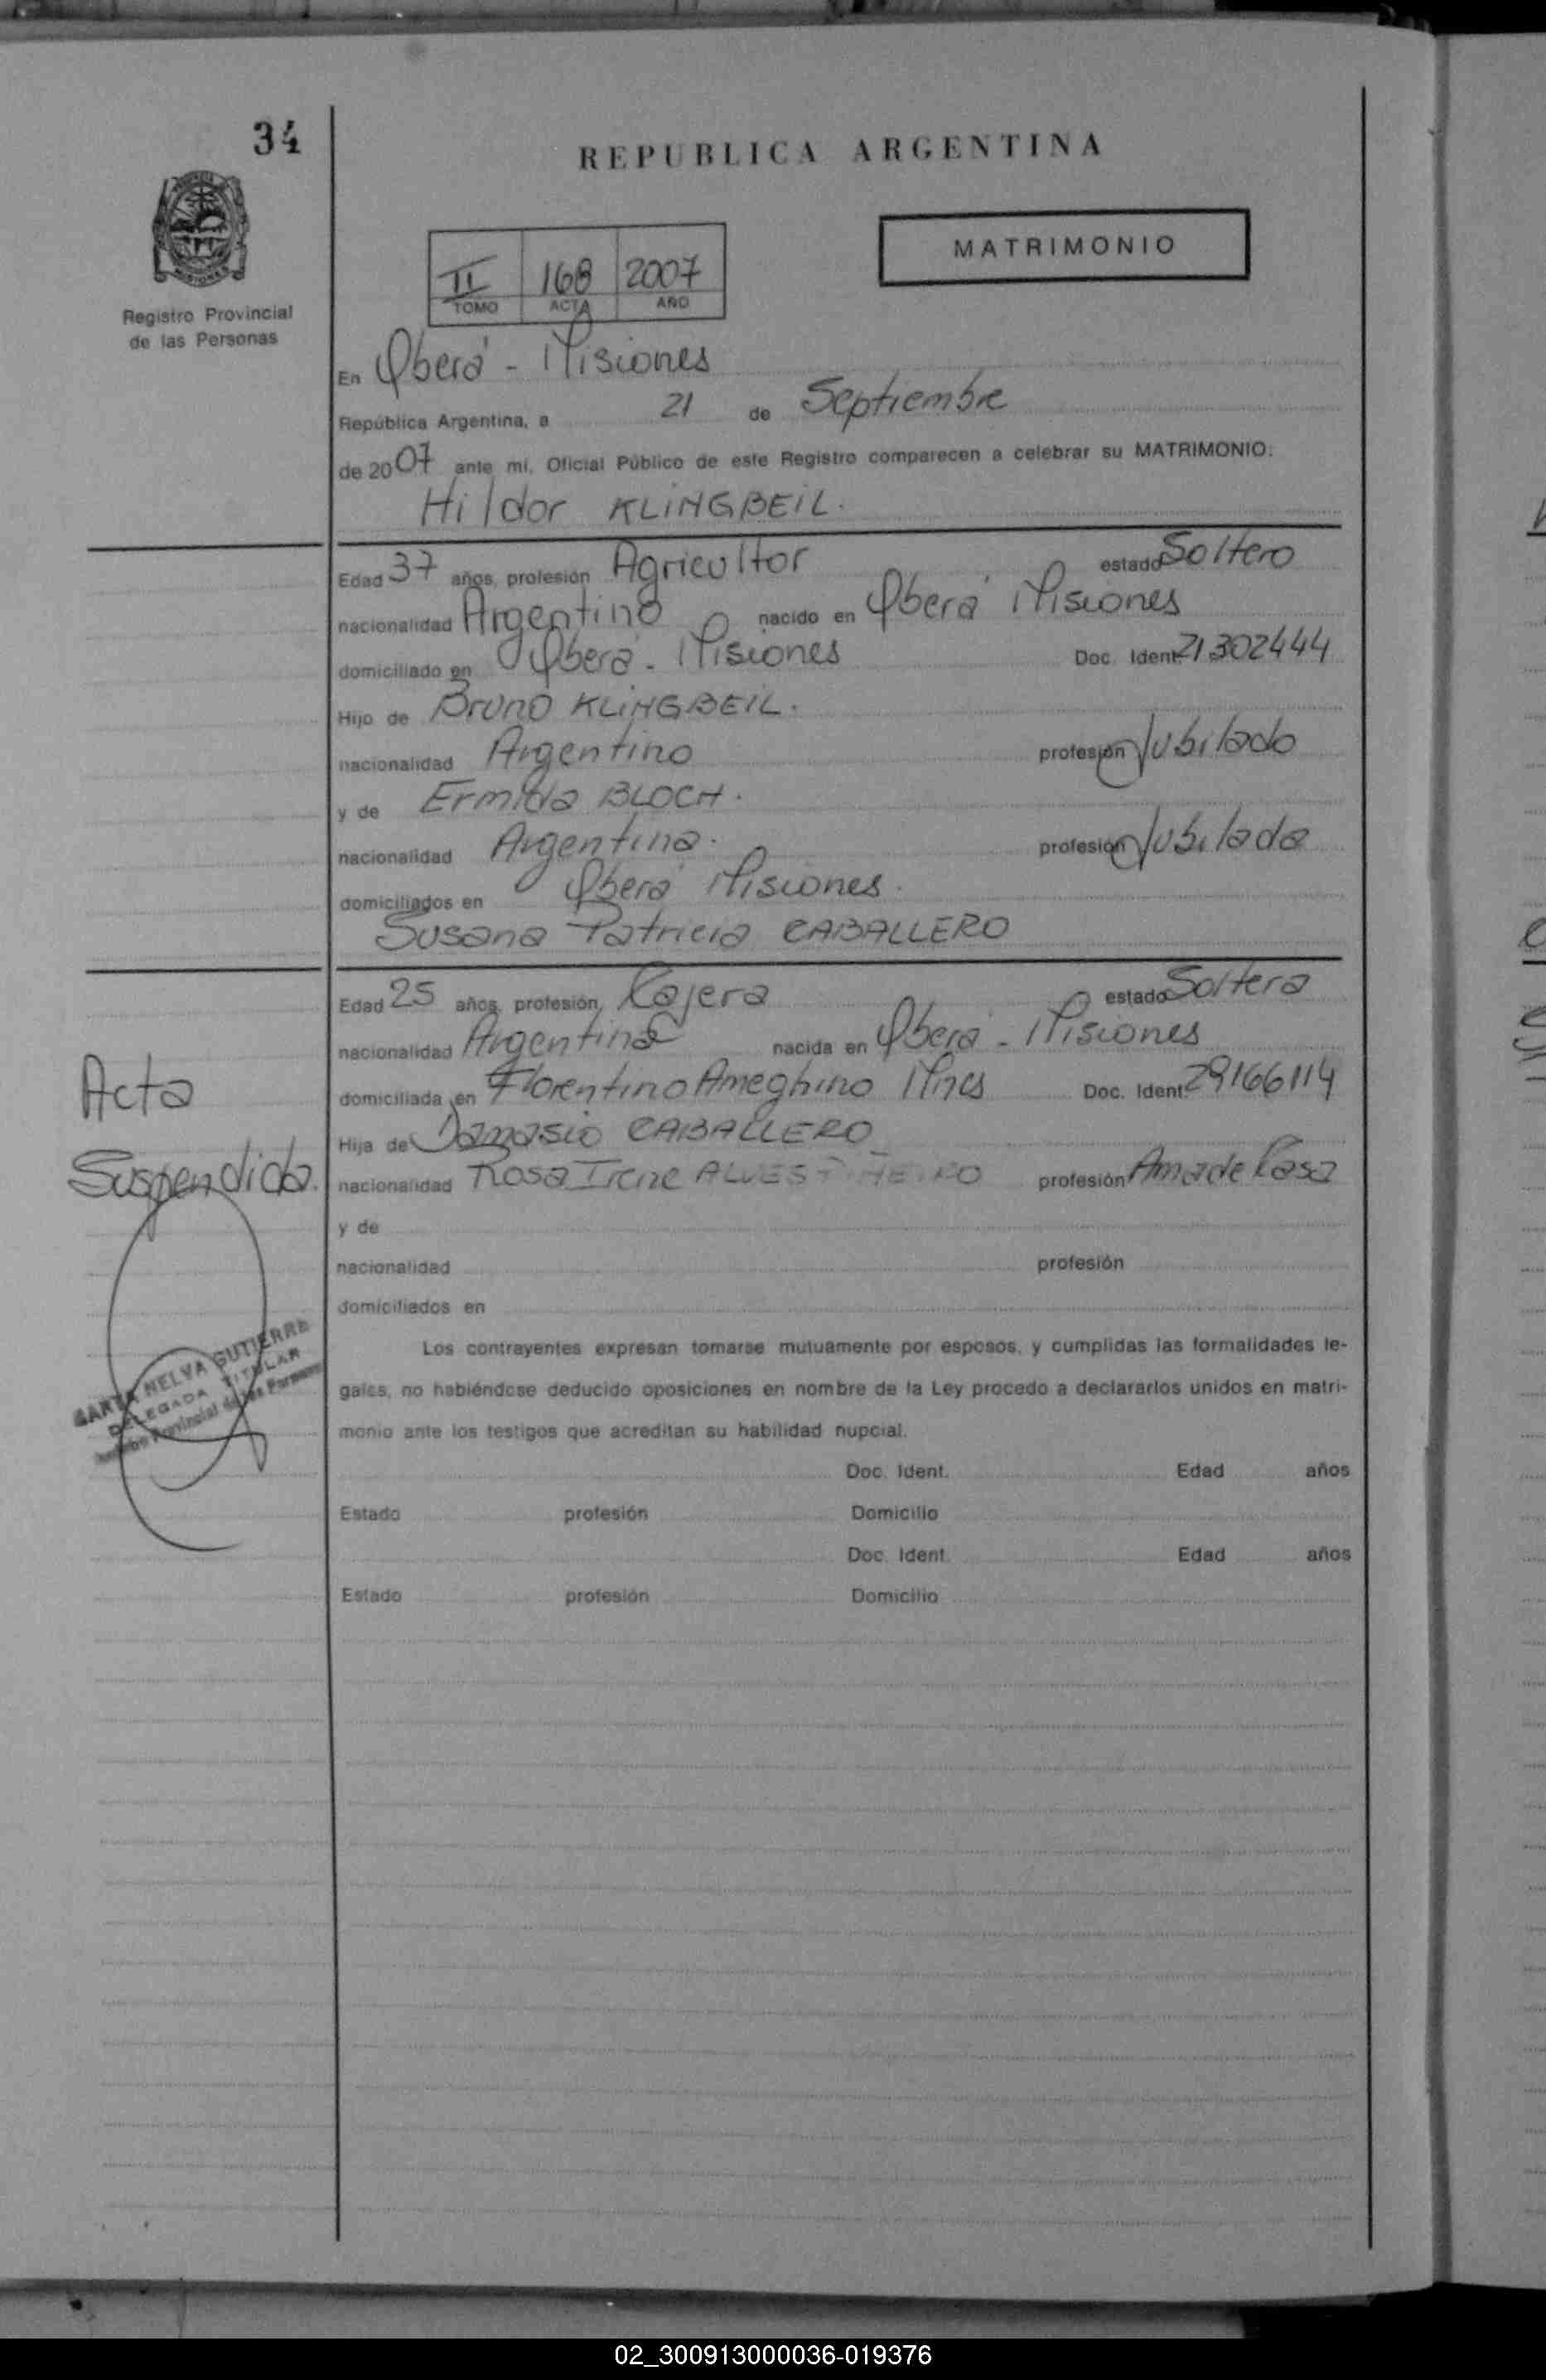 34
REPUBLICA ARGENTINA
MATRIMONIO
II 168 2007
TOMO ACTA AÑO
Registro Provincial
de las Personas
En Oberá - Misiones
República Argentina, a 21 de Septiembre
de 2007 ante mí, Oficial Público de este Registro comparecen a celebrar su MATRIMONIO:
Hildor KLINGBEIL.
Edad 37 años, profesión Agricultor estado Soltero
nacionalidad Argentino nacido en Oberá Misiones
domiciliado en Oberá - Misiones Doc. Ident. 21.302444
Hijo de Bruno KLINGBEIL.
nacionalidad Argentino profesión Jubilado
y de Ermilda BLOCH.
nacionalidad Argentina. profesión Jubilada
domiciliados en Oberá Misiones.
Susana Patricia CABALLERO
Edad 25 años, profesión, Cajera estado Soltera
nacionalidad Argentina nacida en Oberá - Misiones
domiciliada en Florentino Ameghino Mnes Doc. Ident. 29166114
Hija de Damasio CABALLERO
nacionalidad Rosa Irene ALVES profesión Ama de Casa
y de
nacionalidad profesión
domiciliados en
Acta
Suspendida.
SANTA NELVA GUTIERRE
DELEGADA TITULAR
Provincial de las Personas
Los contrayentes expresan tomarse mutuamente por esposos, y cumplidas las formalidades le-
gales, no habiéndose deducido oposiciones en nombre de la Ley procedo a declararlos unidos en matri-
monio ante los testigos que acreditan su habilidad nupcial.
Doc. Ident. Edad años
Estado profesión Domicilio
Doc. Ident. Edad años
Estado profesión Domicilio
02_300913000036-019376